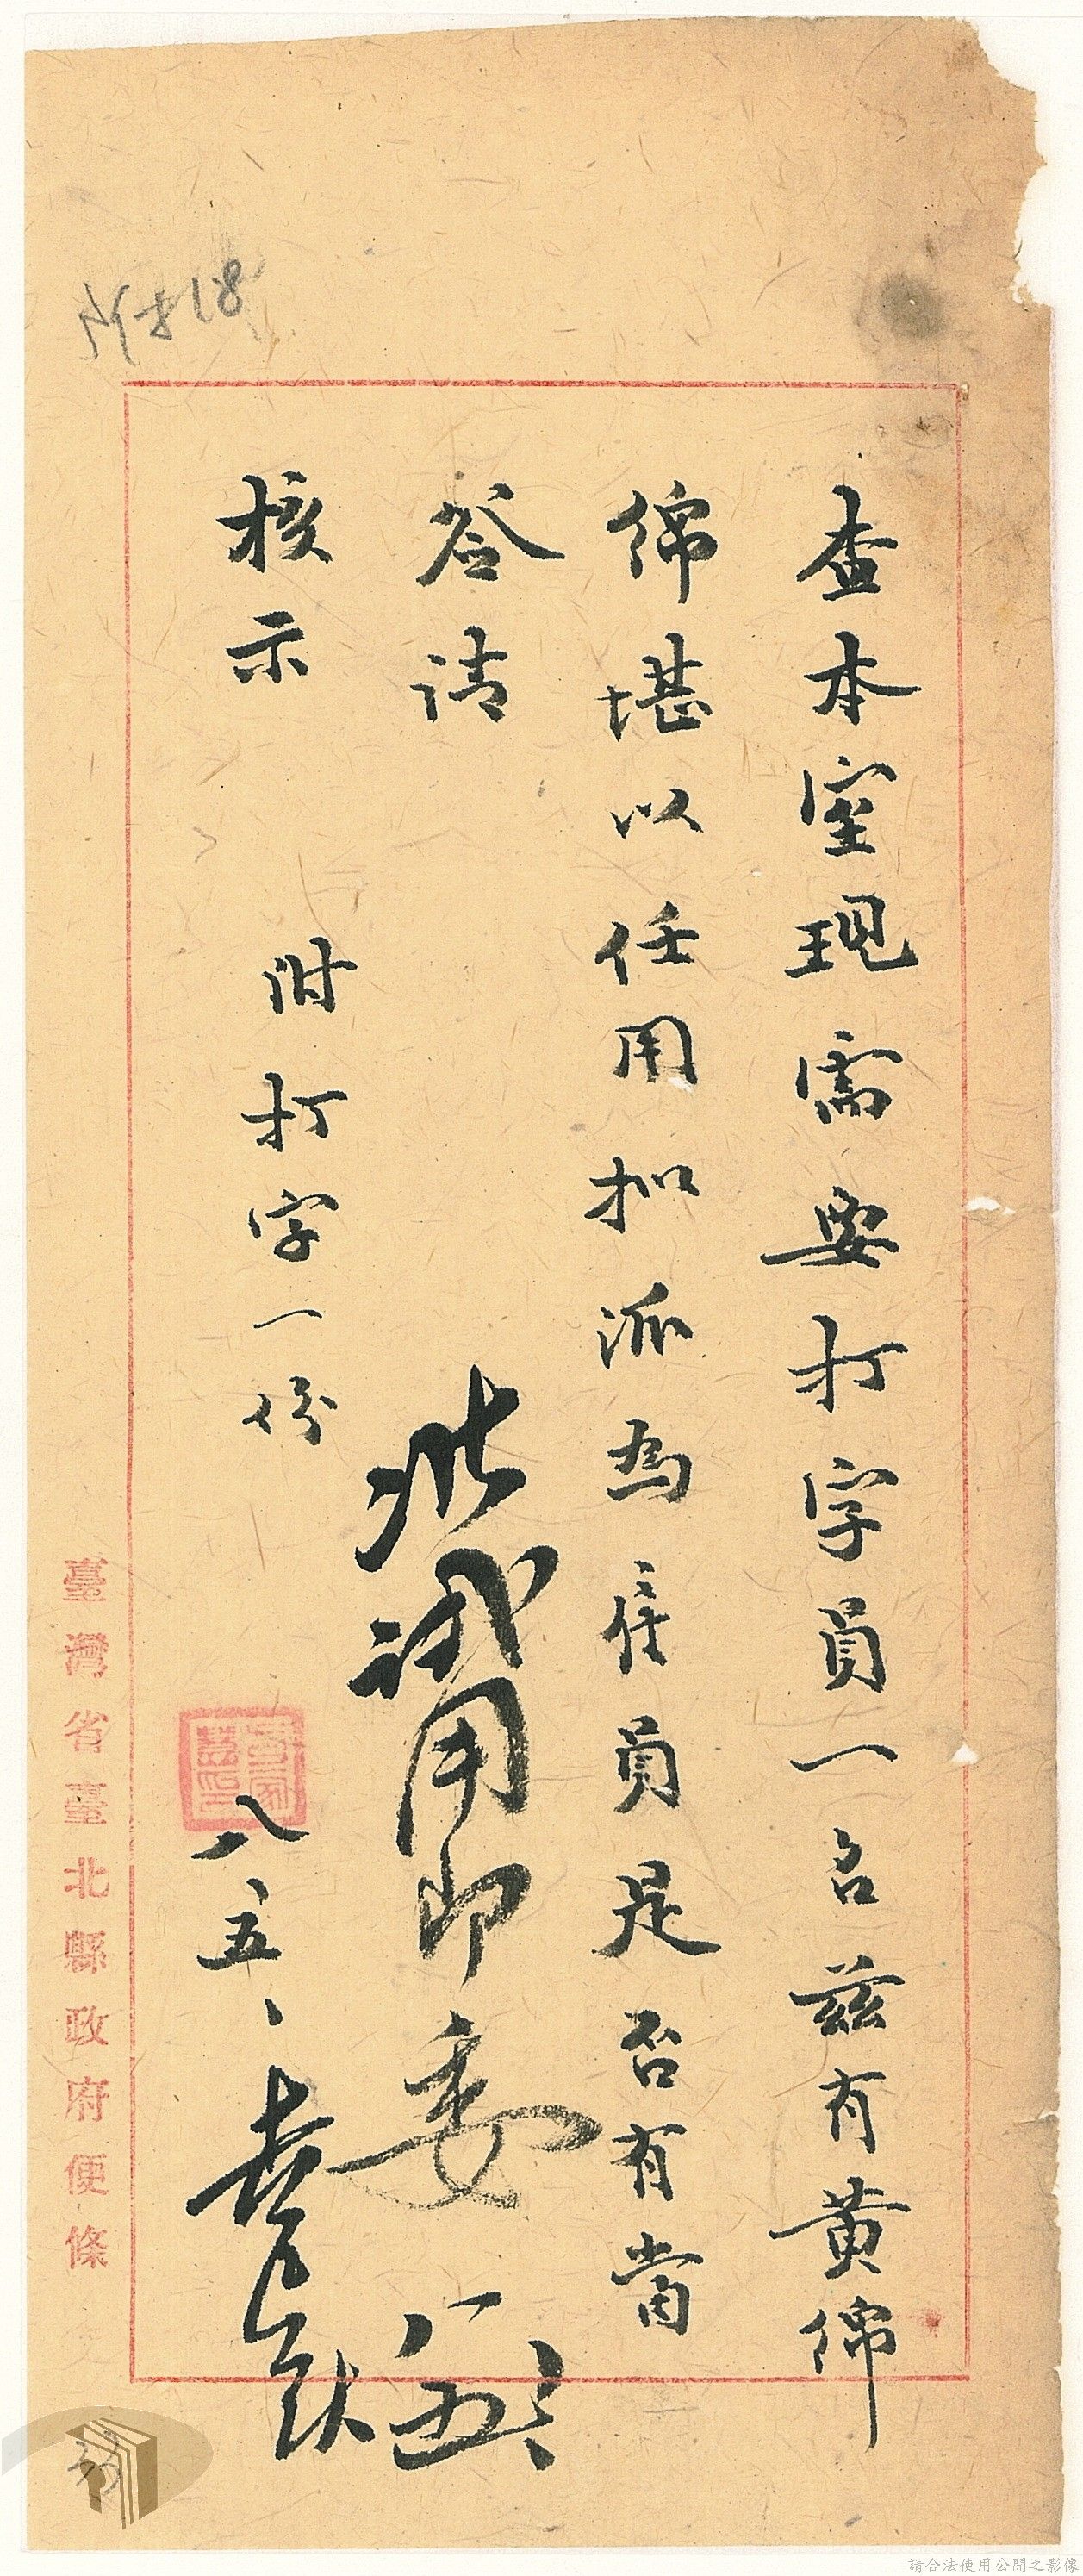 查本室現需要打字員一名茲有黃綿
綿堪以任用擬派為雇員是否有當
簽請
核示
附打字一份
准試用即委
八、五、
八、五、
臺灣省臺北縣政府便條
附卡18
33
請合法使用公開之影像